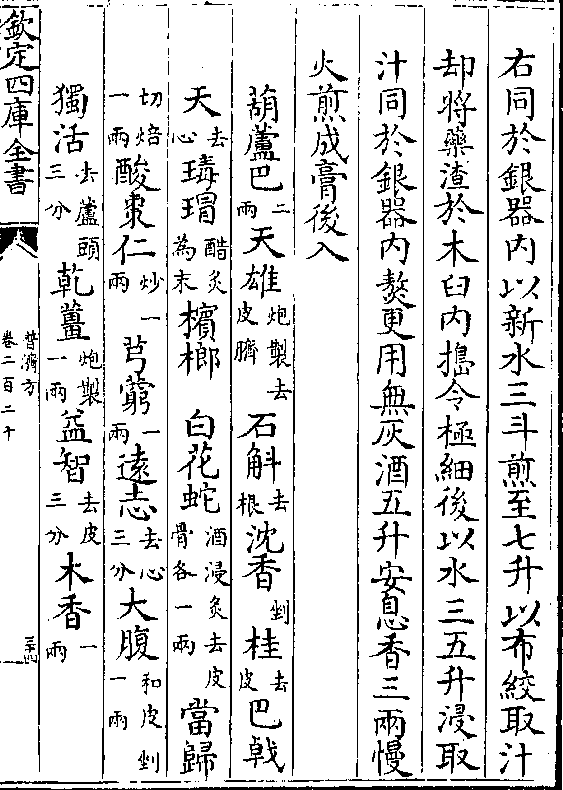 右同於銀器内以新水三斗煎至七升以布絞取汁
却將藥渣於木臼内搗令極細後以水三五升浸取
汁同於銀器内熬更用無灰酒五升安息香三兩慢
火煎成膏後入
葫蘆巴二兩天雄炮製去皮臍石斛去根沈香剉桂去皮巴戟
天去心瑇瑁酷炙為末檳榔白花蛇酒浸炙去皮骨各一兩當歸
切焙一兩酸棗仁炒一兩芎藭一兩遠志去心三分大腹和皮剉一兩
獨活去蘆頭三分乾薑炮製一兩益智去皮三分木香一兩
欽定四庫全書
普濟方
卷二百二十
三十四